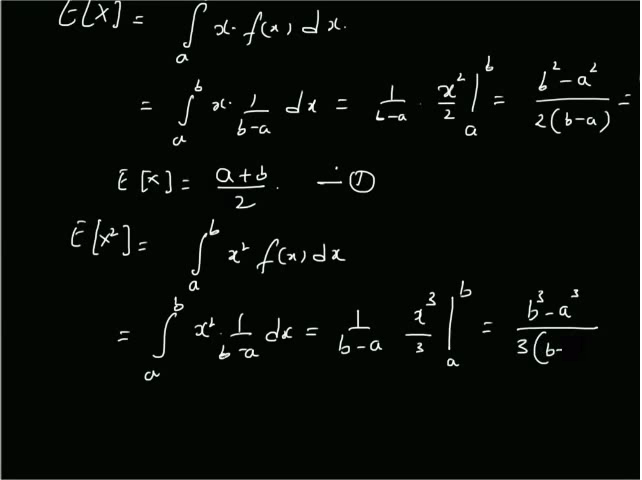 E[X] = ∫ₐ x. f(x) dx.
= ∫ₐᵇ x. 1/(b-a) dx = 1/(b-a) . x²/2 |ₐᵇ = (b²-a²)/(2(b-a)) =
E[x] = (a+b)/2. — ①
E[x²] = ∫ₐᵇ x² f(x) dx
= ∫ₐᵇ x². 1/(b-a) dx = 1/(b-a) x³/3 |ₐᵇ = (b³-a³)/(3(b-